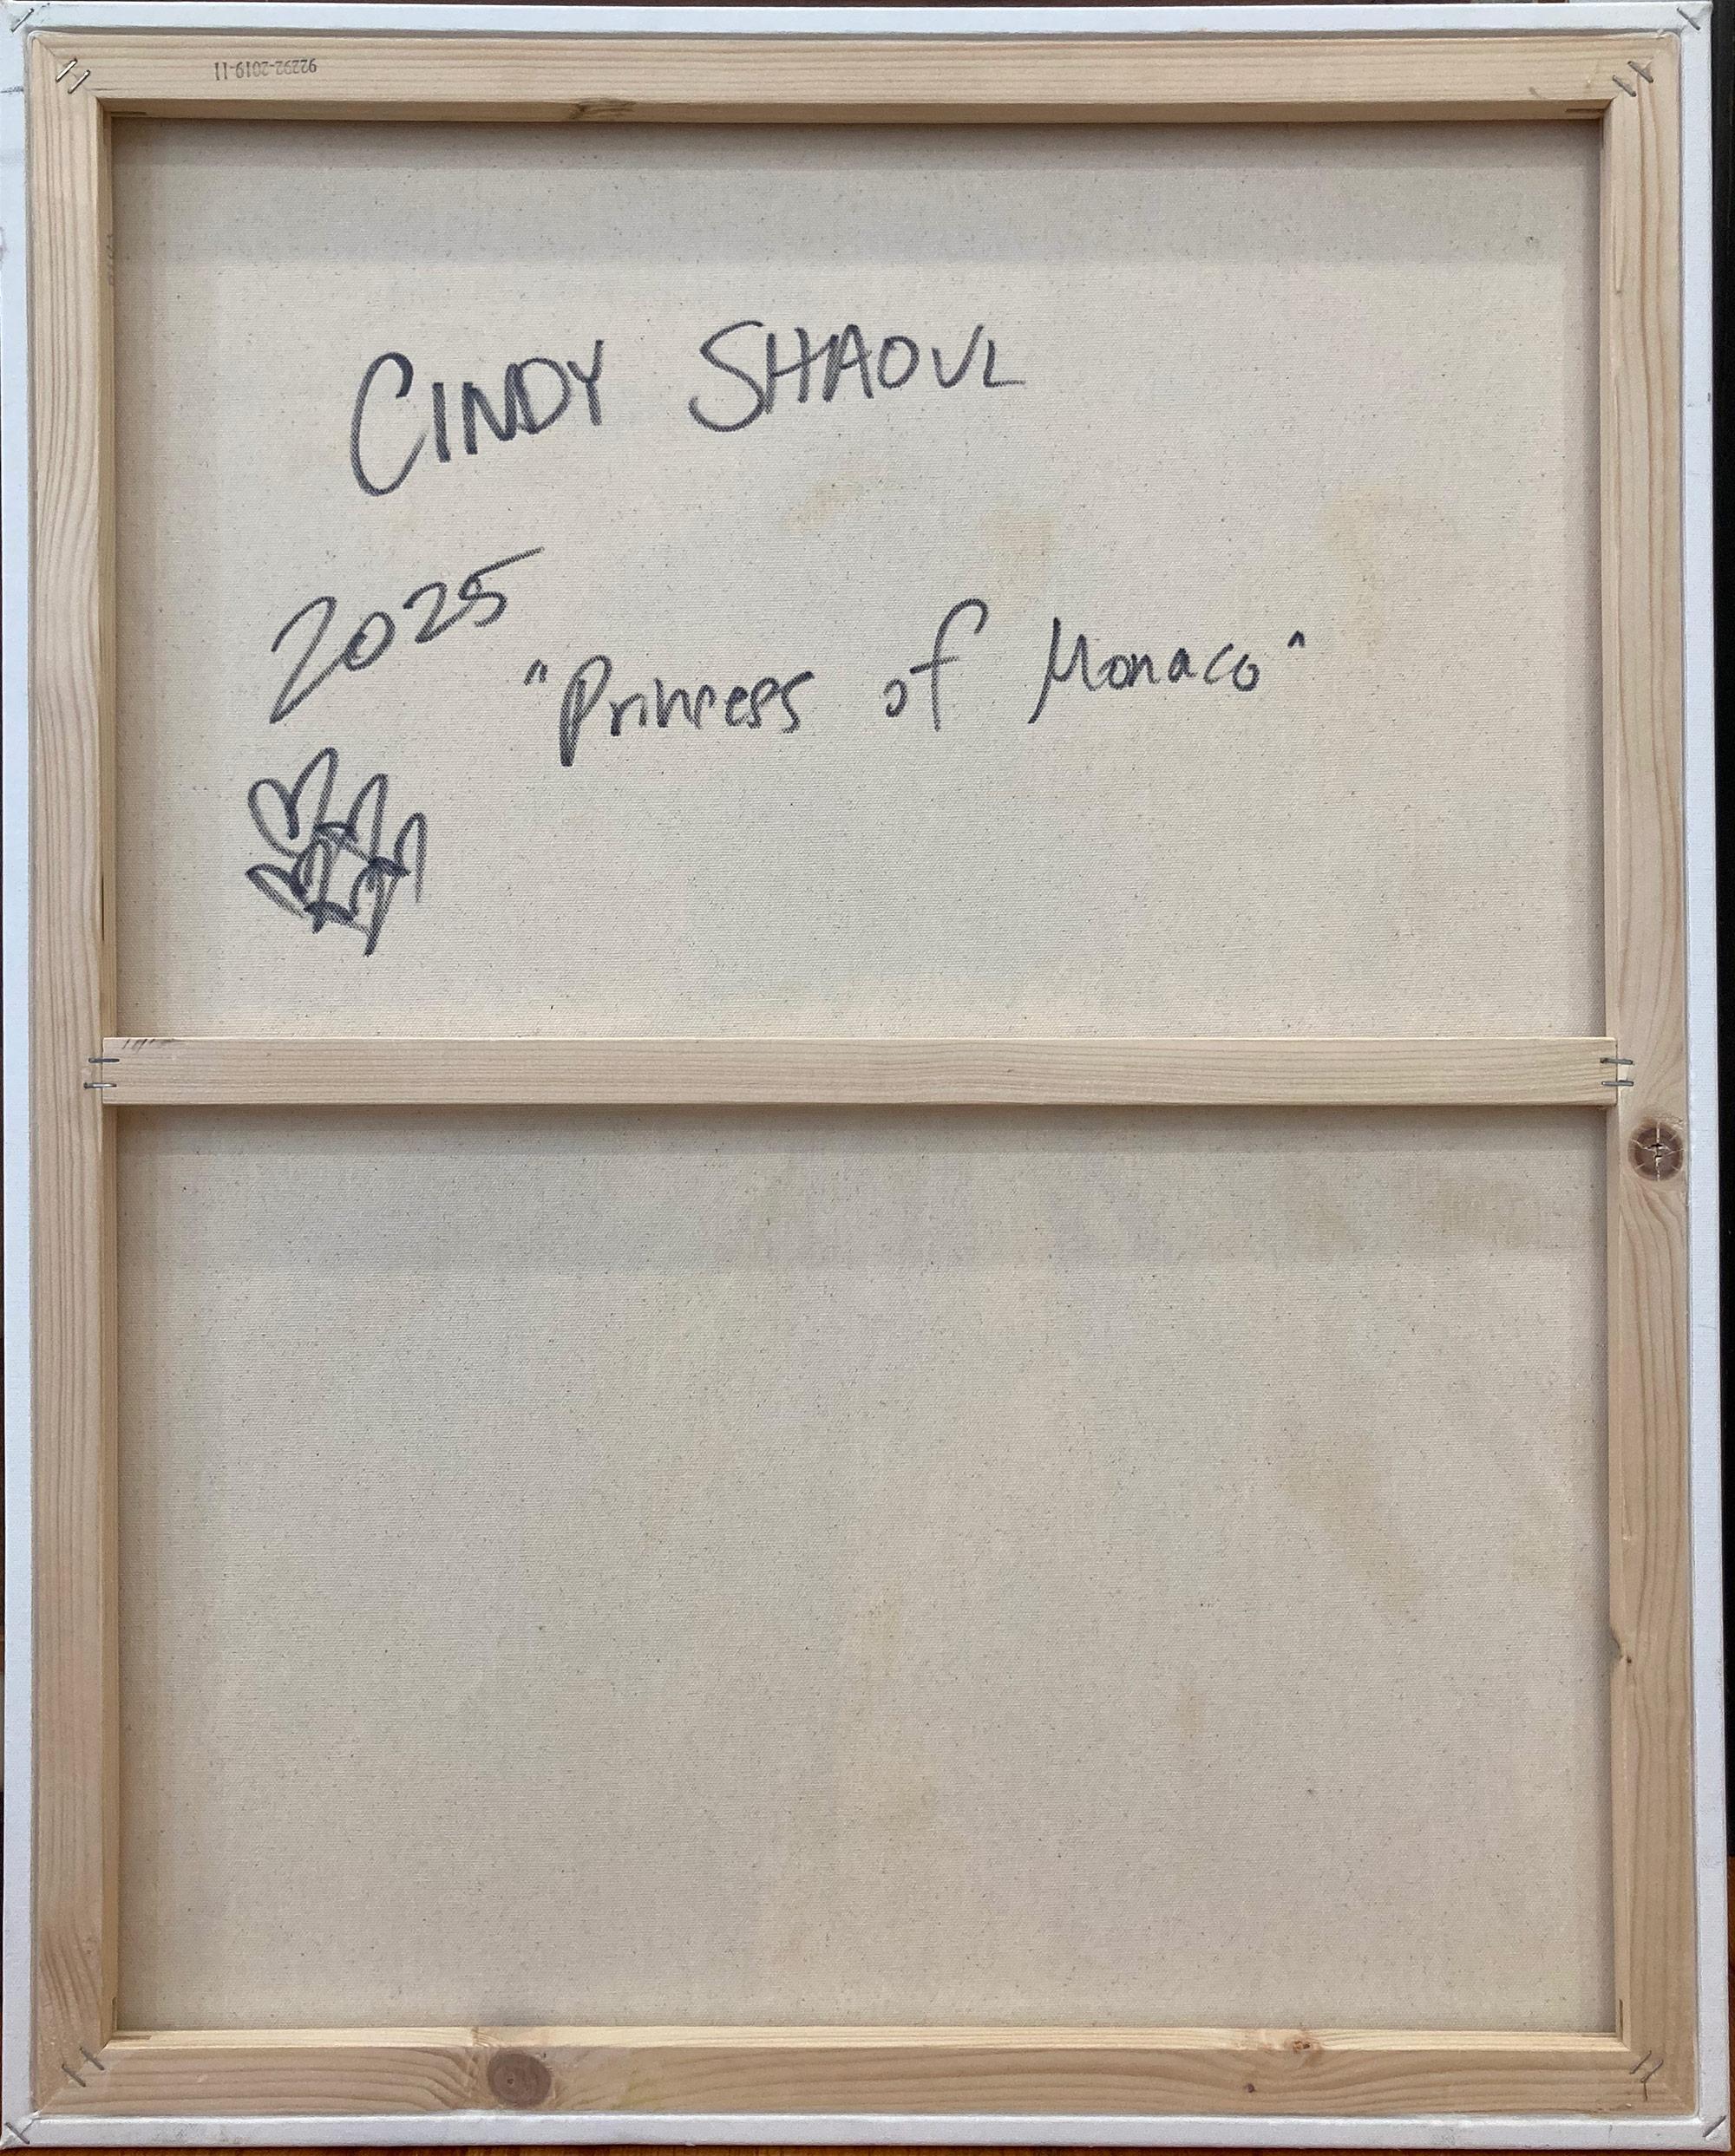 92292-2019-11
CINDY SHAOUL
2025
"Princess of Monaco"